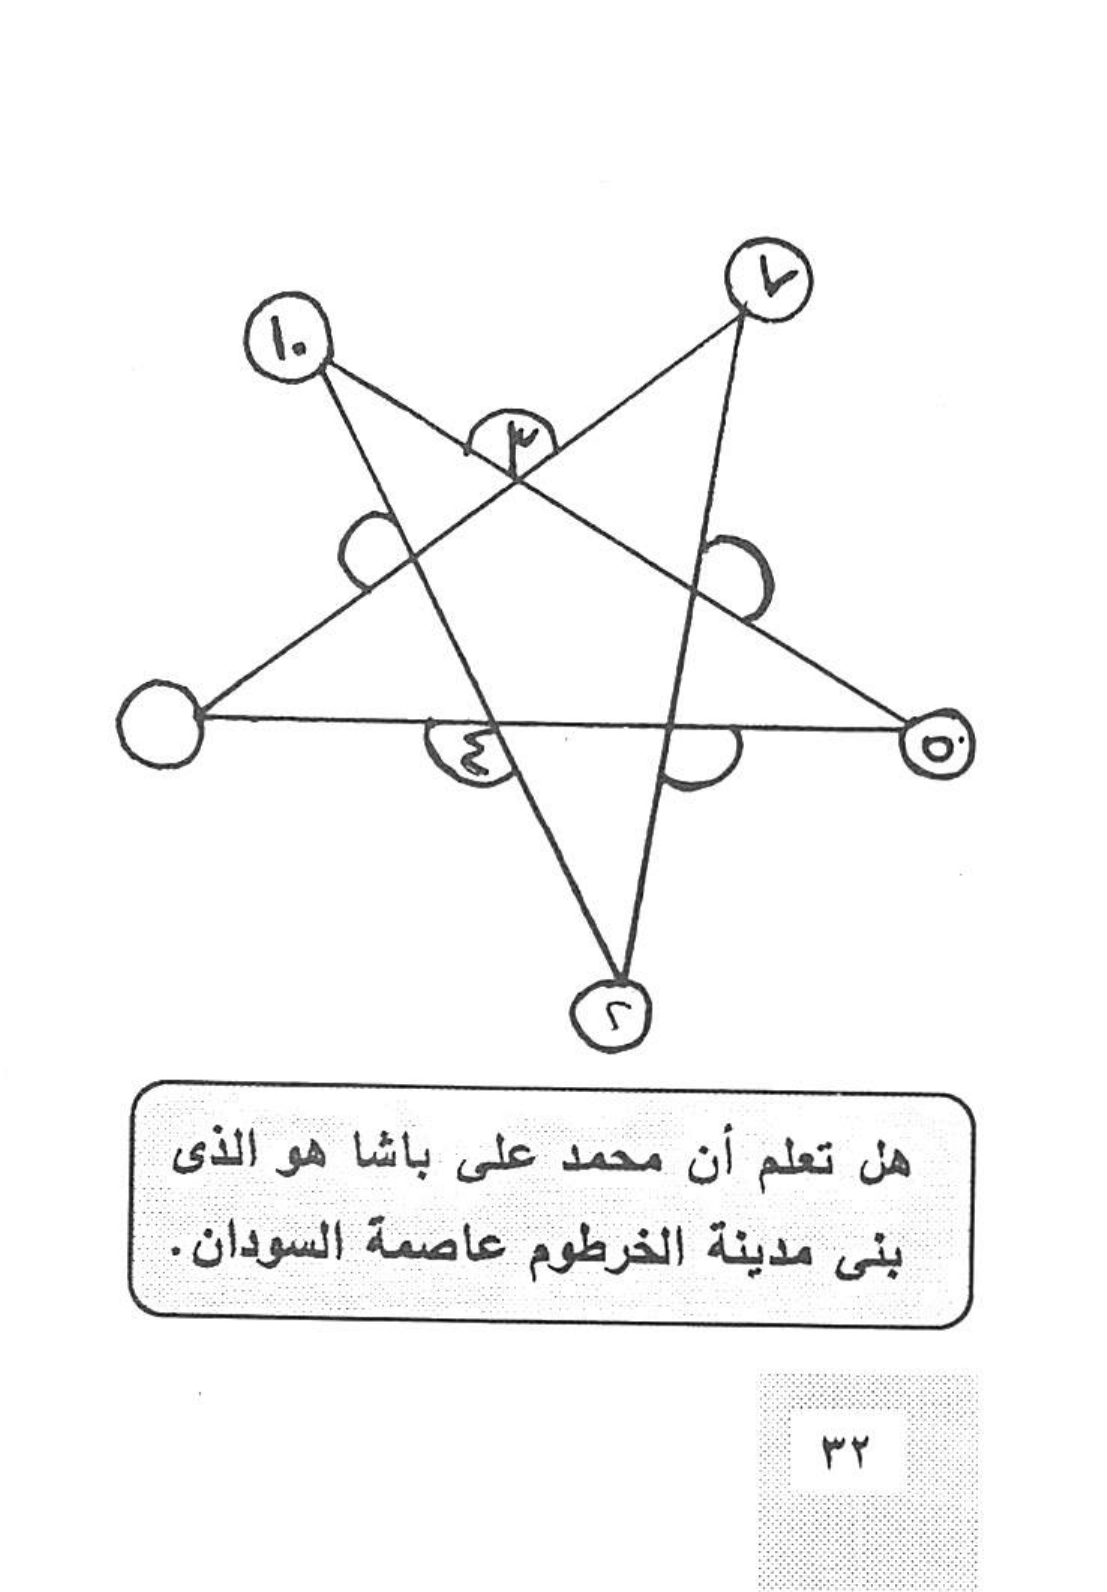 ٧
١٠
٣
٤
٥
٢
هل تعلم أن محمد على باشا هو الذى
بنى مدينة الخرطوم عاصمة السودان.
٣٢